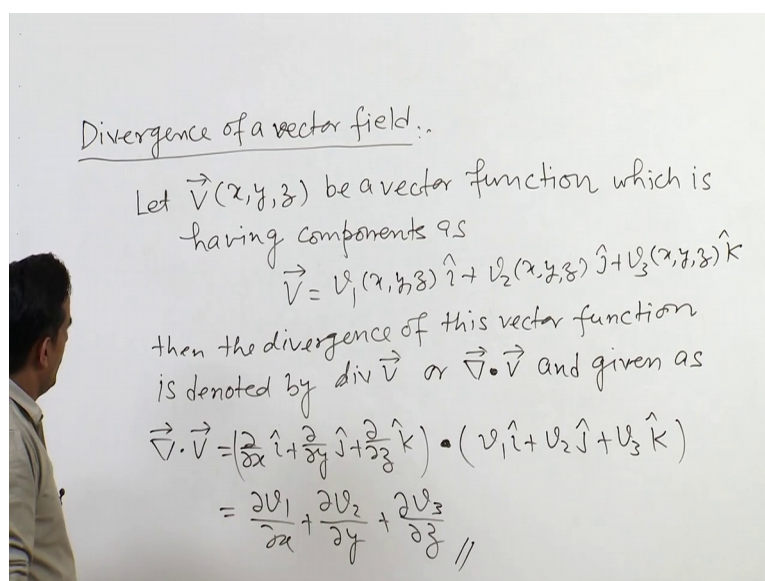 Divergence of a vector field:.
Let V⃗(x,y,z) be a vector function which is
having components as
V⃗ = v₁(x,y,z) î + v₂(x,y,z) ĵ + v₃(x,y,z) k̂
then the divergence of this vector function
is denoted by div V⃗ or ∇⃗•V⃗ and given as
∇⃗.V⃗ = (∂/∂x î + ∂/∂y ĵ + ∂/∂z k̂) • (v₁î + v₂ĵ + v₃k̂)
= ∂v₁/∂x + ∂v₂/∂y + ∂v₃/∂z //